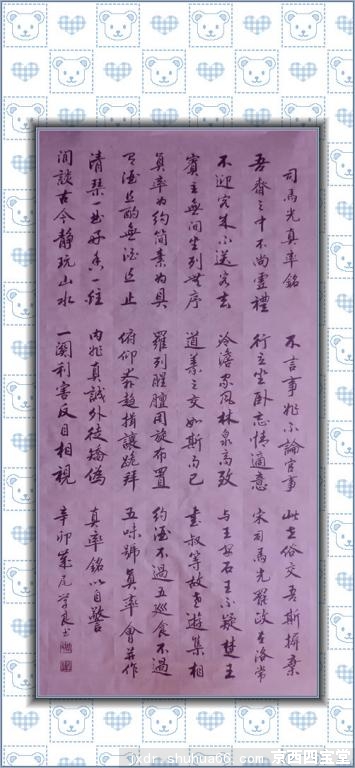 司馬光真率銘
吾齋之中不尚虛禮
不迎客來不送客去
賓主無間坐列無序
真率為約簡素為具
有酒且酌無酒且止
清琴一曲好香一炷
閒談古今靜玩山水
不言事非不論官事
行立坐卧忘情適意
冷澹家風林泉高致
道義之交如斯而已
羅列腥膻周旋布置
俯仰奔趨揖讓跪拜
內非真誠外徒矯偽
一關利害反目相視
此世俗交吾斯擯棄
宋司馬光罷政在洛常
与王安石王不疑楚王
叔等故老遊集相
約酒不過五巡食不過
五味號真率會并作
真率銘以自警
辛卯
jxdr.shuhuabc.com 京西四宝堂